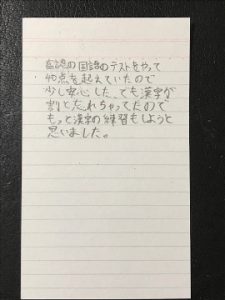 国語のテストをやって
40点を超えていたので
少し安心した、でも漢字が
割と忘れちゃってたので
もっと漢字の練習もしようと
思いました。